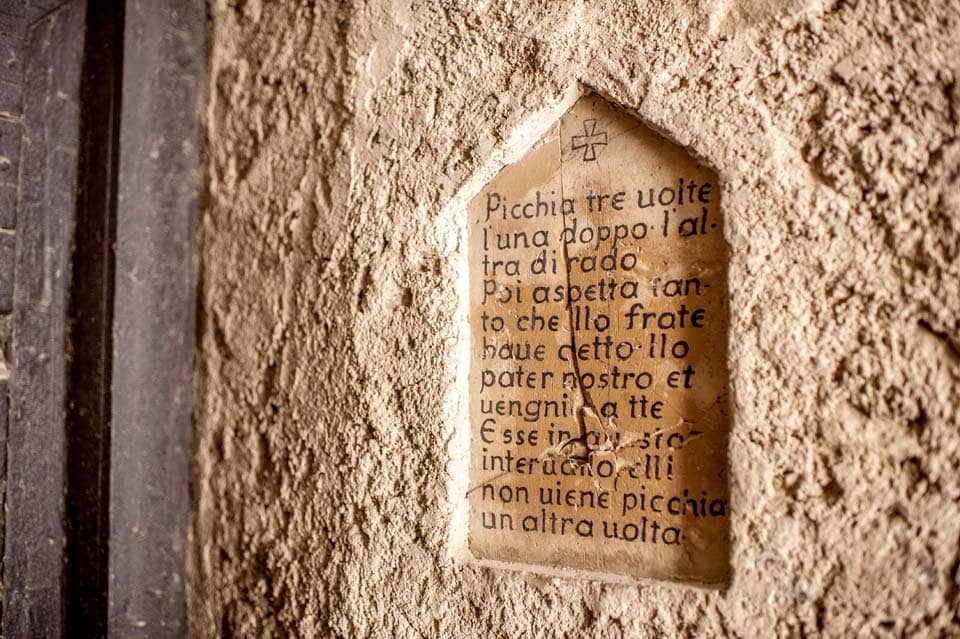 Picchia tre uolte
l'una doppo·l'al·
tra di rado
Poi aspetta tan-
to che llo frate
haue detto·llo
pater nostro et
a tte
E sse in
interuallo elli
non uiene picchia
un altra uolta·